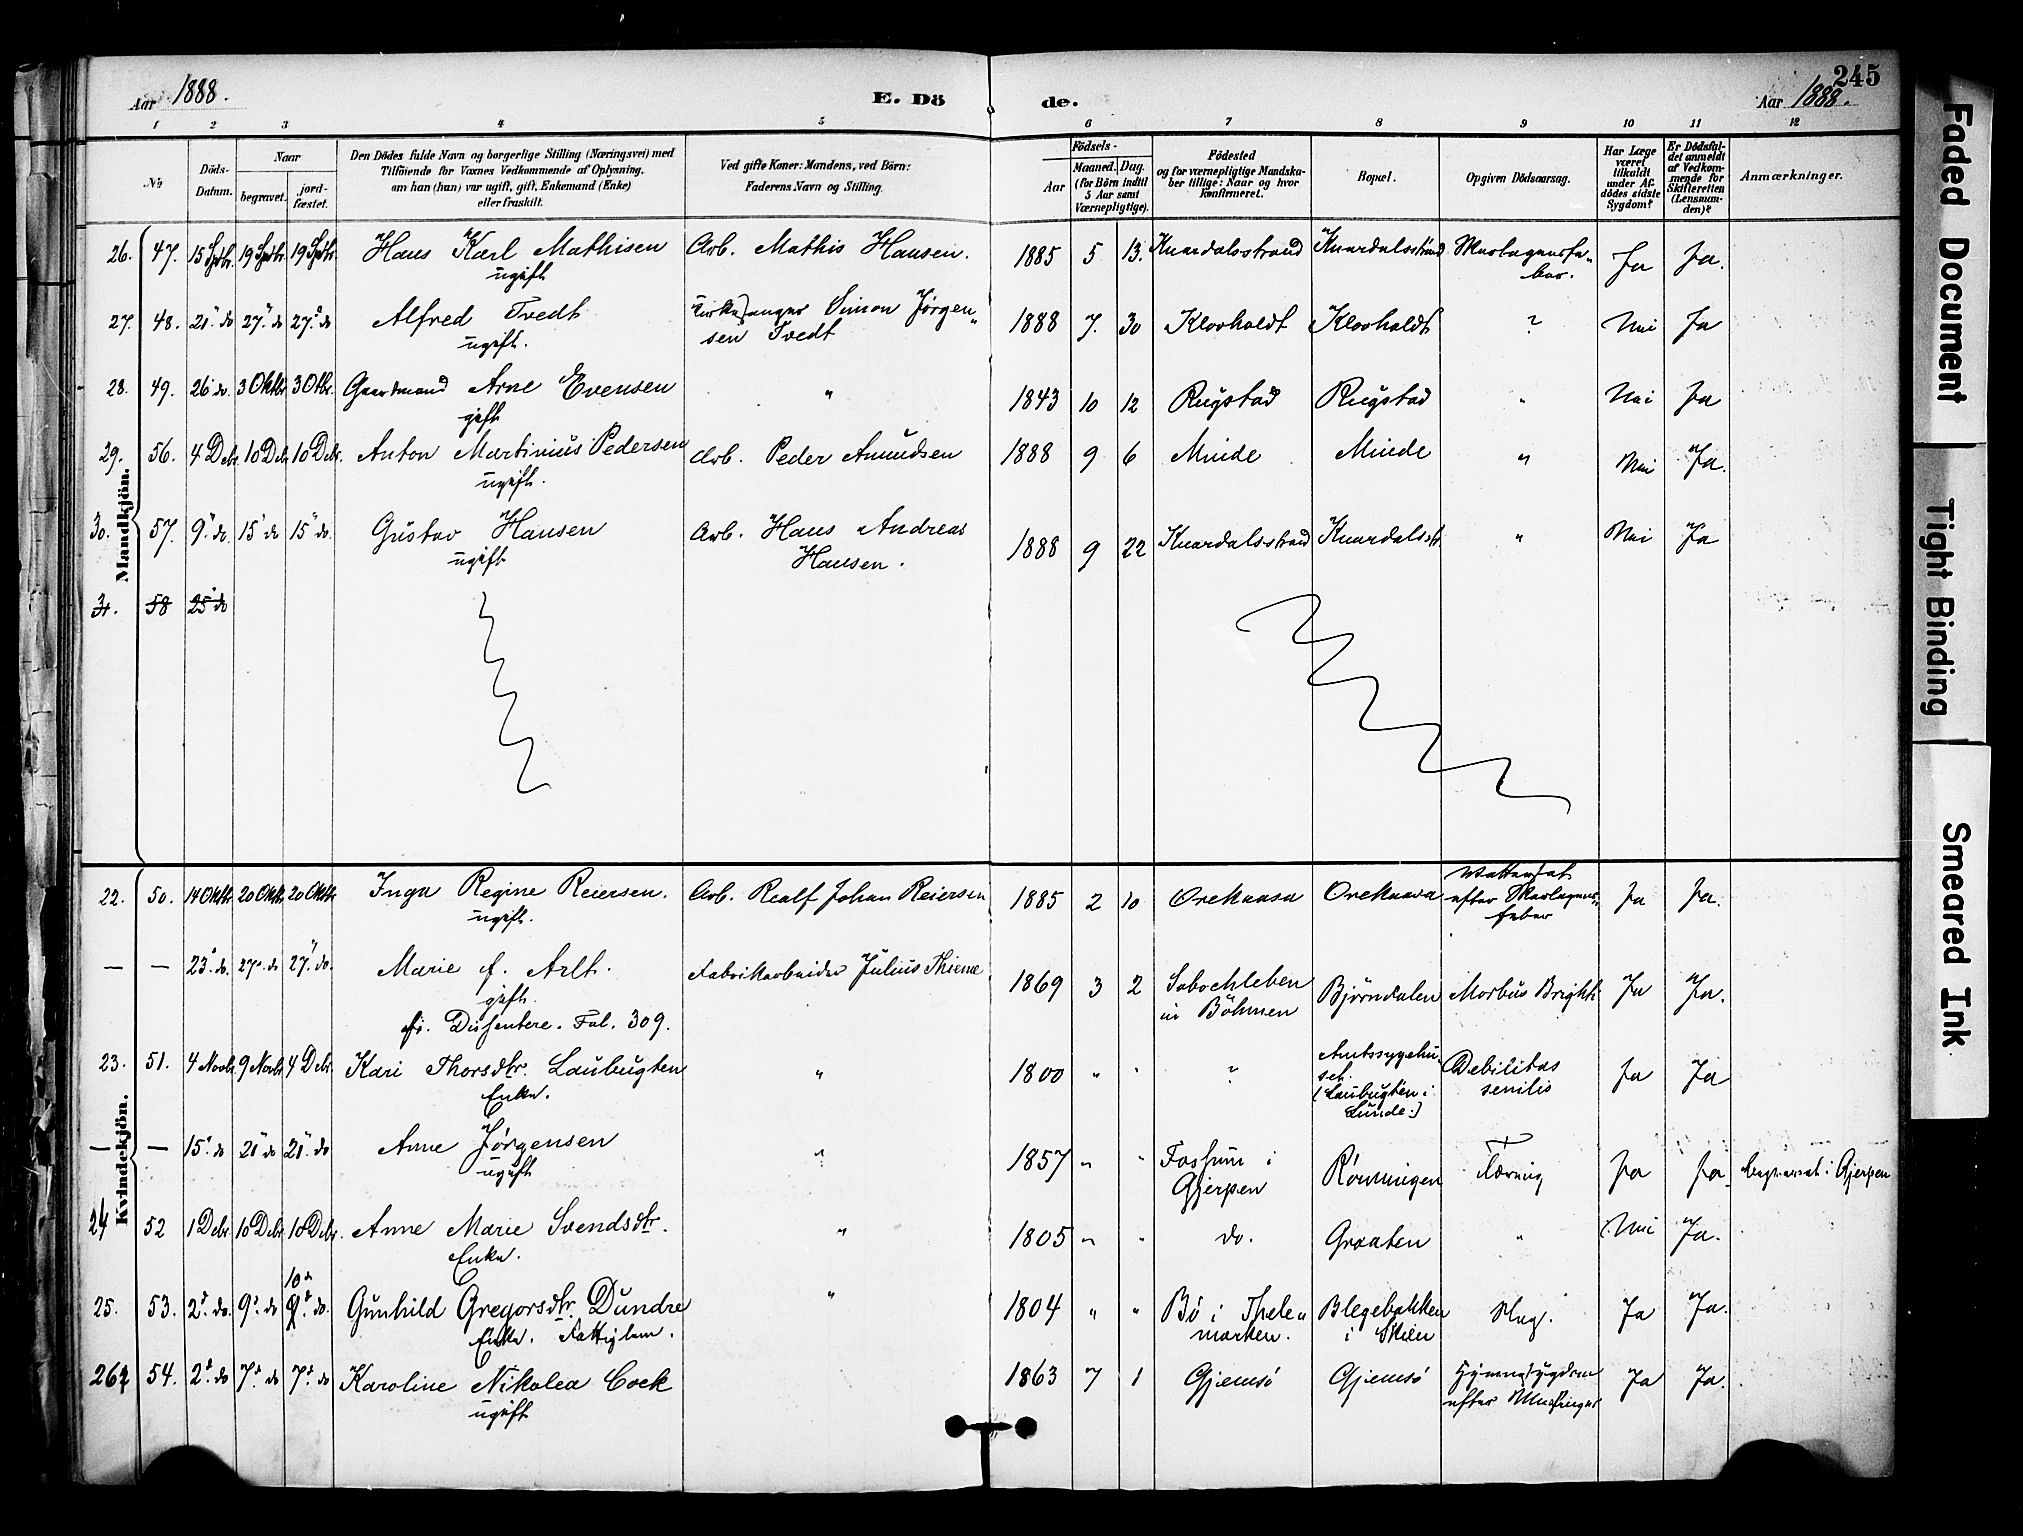 Aar 1888.
E. Dö
de.
Aar 1888.
245
1 2 3 4 5 6 7 8 9 10 11 12
No
Döds-
Datum.
Naar
begravet.
jord-
fæstet.
Den Dödes fulde Navn og borgerlige Stilling (Næringsvei) med
Tilföiende for Voxnes Vedkommende af Oplysning,
om han (hun) var ugift, gift, Enkemand (Enke)
eller fraskilt.
Ved gifte Koner: Mandens, ved Börn:
Faderens Navn og Stilling.
Födsels-
Aar
Maaned. Dag.
(for Börn indtil
5 Aar samt
Værnepligtige).
Födested
og for værnepligtige Mandska-
ber tillige: Naar og hvor
konfirmeret.
Bopæl.
Opgiven Dödsaarsag.
Har Læge
været
tilkaldt
under Af-
dödes sidste
Sygdom?
Er Dödsfal-
det anmeldt
af Vedkom-
mende for
Skifteretten
(Lensman-
den)?
Anmærkninger.
Mandkjön.
26. 47. 15 Septbr. 19 Septbr. 19 Septbr. Hans Karl Mathisen Arb. Mathis Hansen. 1885 5 13. Knardalsstrand Knardalsstrand Skarlagensfe„ Ja Ja.
ugift ber.
27. 48. 21 do 27 do 27 do Alfred Tvedt Kirkesanger Simon Jørgen„ 1888 7. 30 Klovholdt Klovholdt ? Nei Ja
ugift. sen Tvedt
28. 49. 26 do 3 Oktbr 3 Otbr. Gaardmand Arne Evensen " 1843 10 12 Rugstad Rugstad " Nei Ja
gift
29. 56. 4 Debr. 10 Debr 10 Debr. Anton Martinius Pedersen Arb. Peder Amundsen 1888 9 6 Minde Minde " Nei Ja.
ugift.
30. 57. 9 do. 15 do 15 do. Gustav Hansen Arb. Hans Andreas 1888 9 22 Knardalsstrand Knardalsstr " Nei Ja
ugift Hansen.
31. 58 25 do
Kvindekjön.
22. 50. 14 Oktbr 20 Oktbr. 20 Oktbr. Inga Regine Reiersen. Arb. Realf Johan Reiersen 1885 2 10 Orekaasa Orekaasa Vattersot Ja Ja.
ugift. efter Skarlagens„
feber
— — 23 do. 27 do 27 do. Marie f. Arlt. Fabrikarbeider Julius Thieme 1869 3 2 Sobochleben Bjørndalen Morbus Brighti Ja Ja.
gift. in Böhmen
cfr. Dissentere. Fol. 309.
23. 51. 4 Novbr 9 Novbr 4 Debr. Kari Thorsdtr. Laubugten " 1800 " " ? Amtssygehu„ Debilitas Ja Ja
Enke. set senilis
(Laubugten i
Lunde.)
— — 15 do 21 do 21 do Anne Jørgensen " 1857 " " Fossum i Rønningen Tæring Ja Ja begravet i Gjerpen
ugift Gjerpen
24 52 1 Debr 10 Debr 10 Debr. Anne Marie Svendsdtr. " 1805 " " do. Graaten " Nei Ja.
Enke.
10 do
25. 53. 2 do. 9 do 9 do. Gunhild Gregorsdtr. Dundre " 1804 " " Bø i Thele„ Blegebakken Slag. Ja Ja.
Enke. Fattiglem. marken. i Skien
26 54. 2 do 7 do 7 do Karoline Nikolea Cock 1863 7 1 Gjemsø Gjemsø Hjernesygdom Ja Ja.
ugift efter Mæslinger
Faded Document
Tight Binding
Smeared Ink